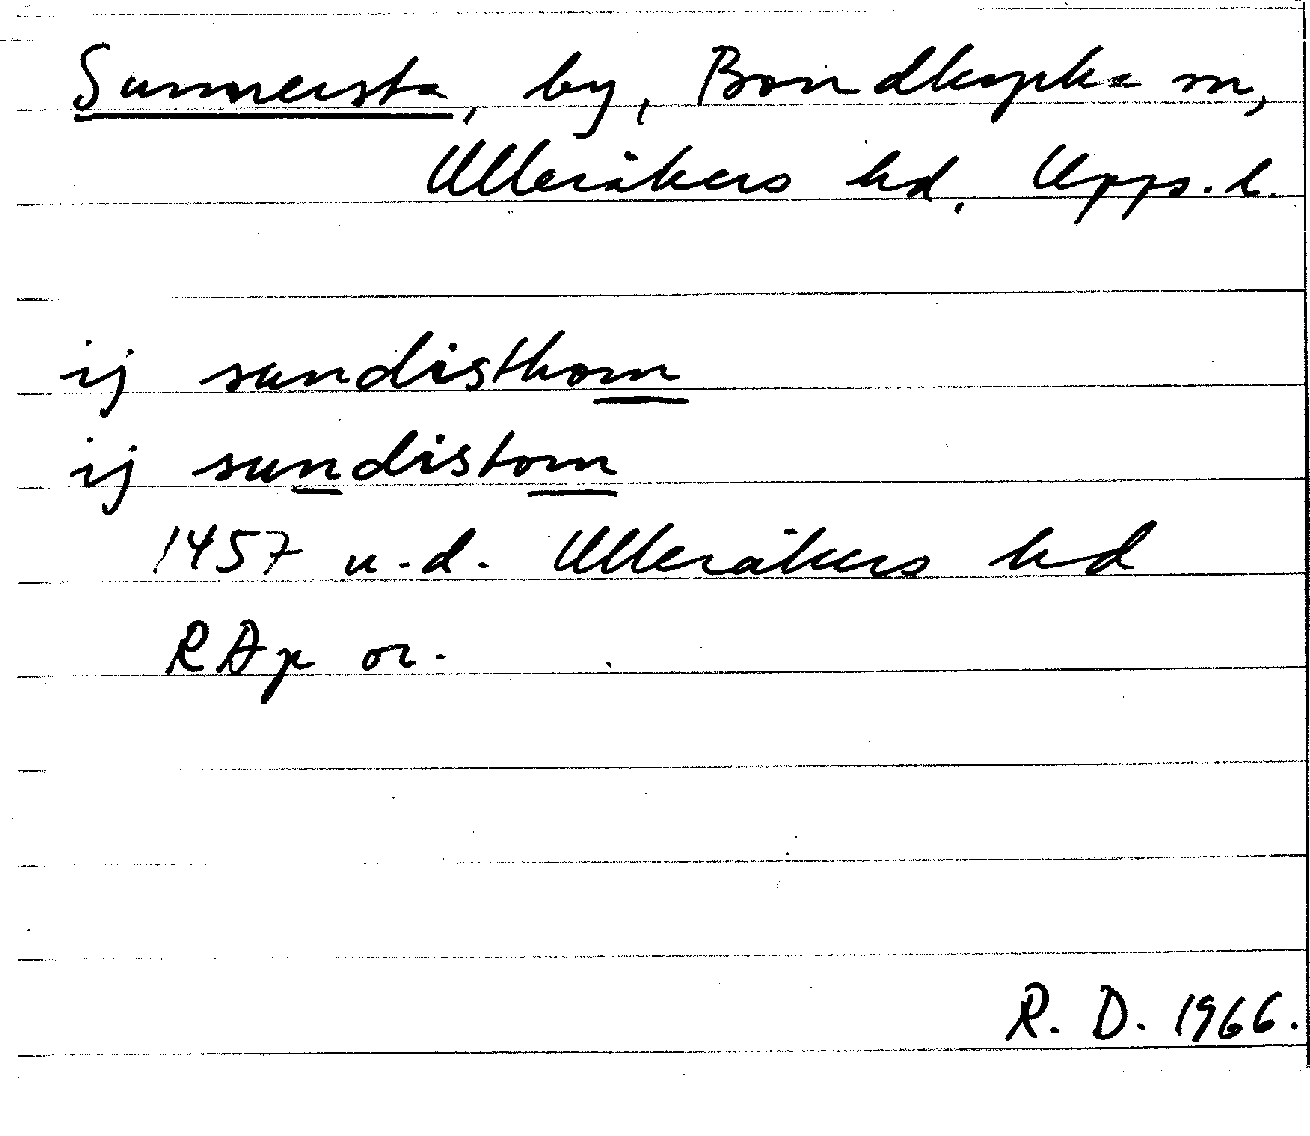 Sunnersta, by, Bondkyrko sn,
Ulleråkers hd, Upps. l.
ij sundisthom
ij sundistom
1457 u.d. Ulleråkers hd
RAp or.
R. D. 1966.